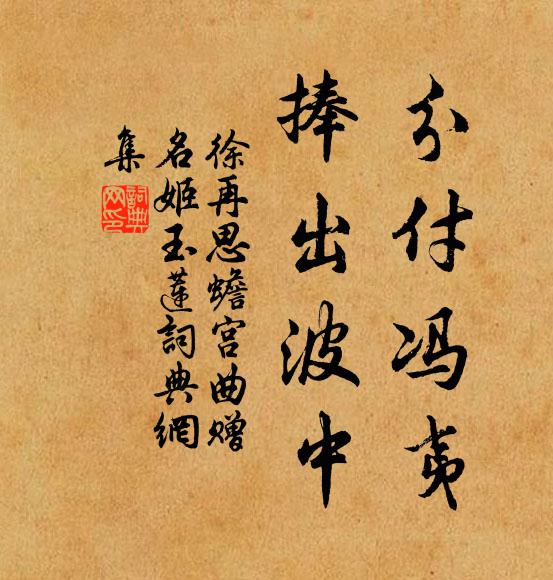 分付冯夷
捧出波中
徐再思蟾宫曲赠
名姬玉莲詞典網
集
詞典
网印